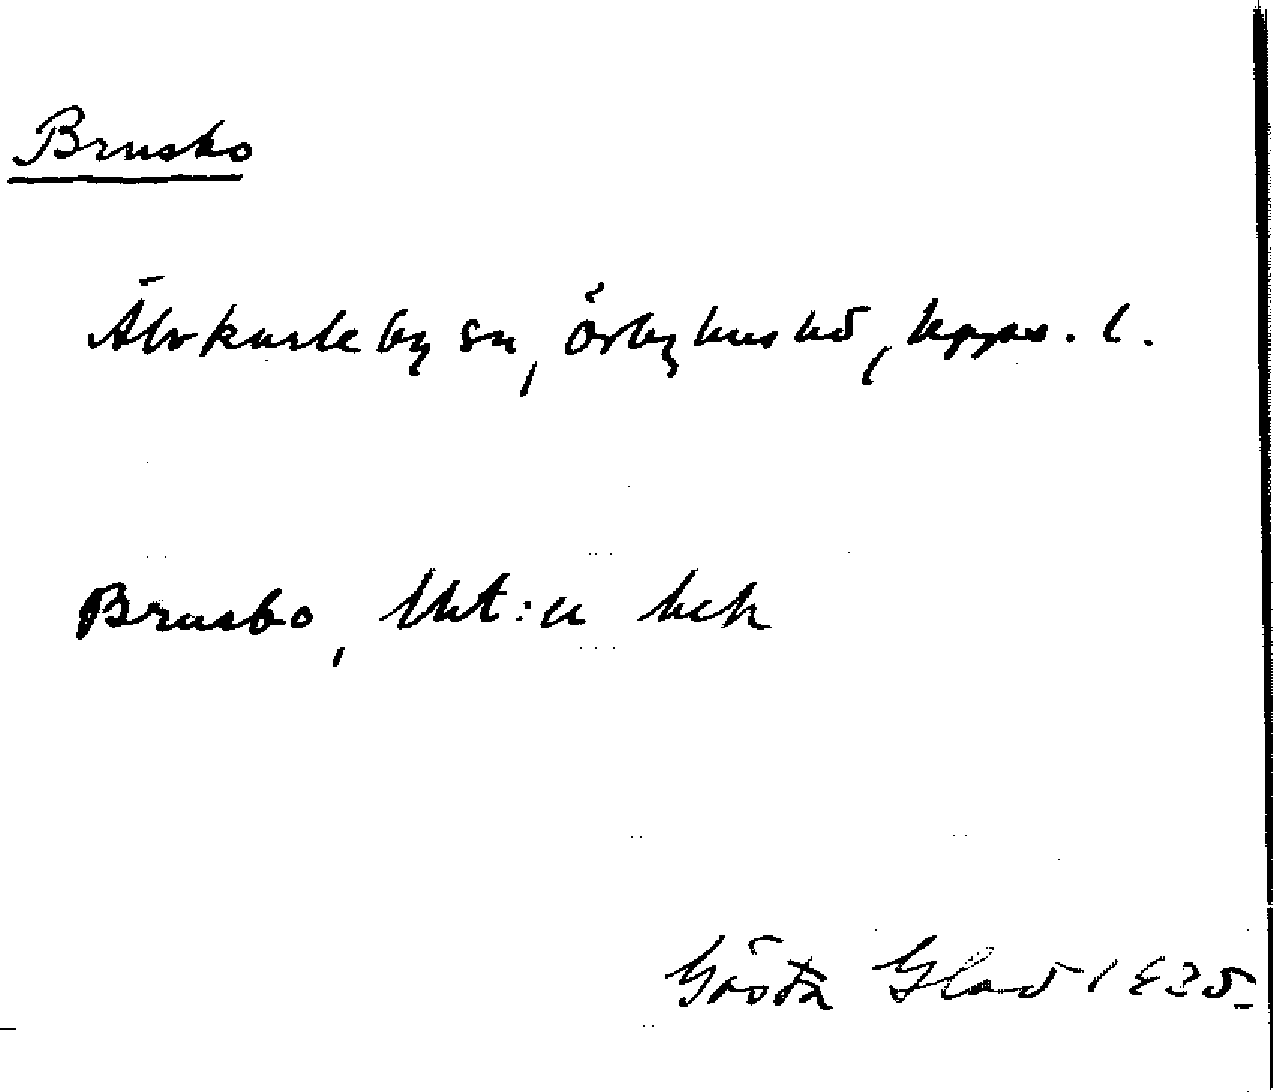 Brusbo
Älvkarleby sn, Örbyhus hd, Upps. l.
Brusbo, Ukt:a bek
Gösta Glad 1935